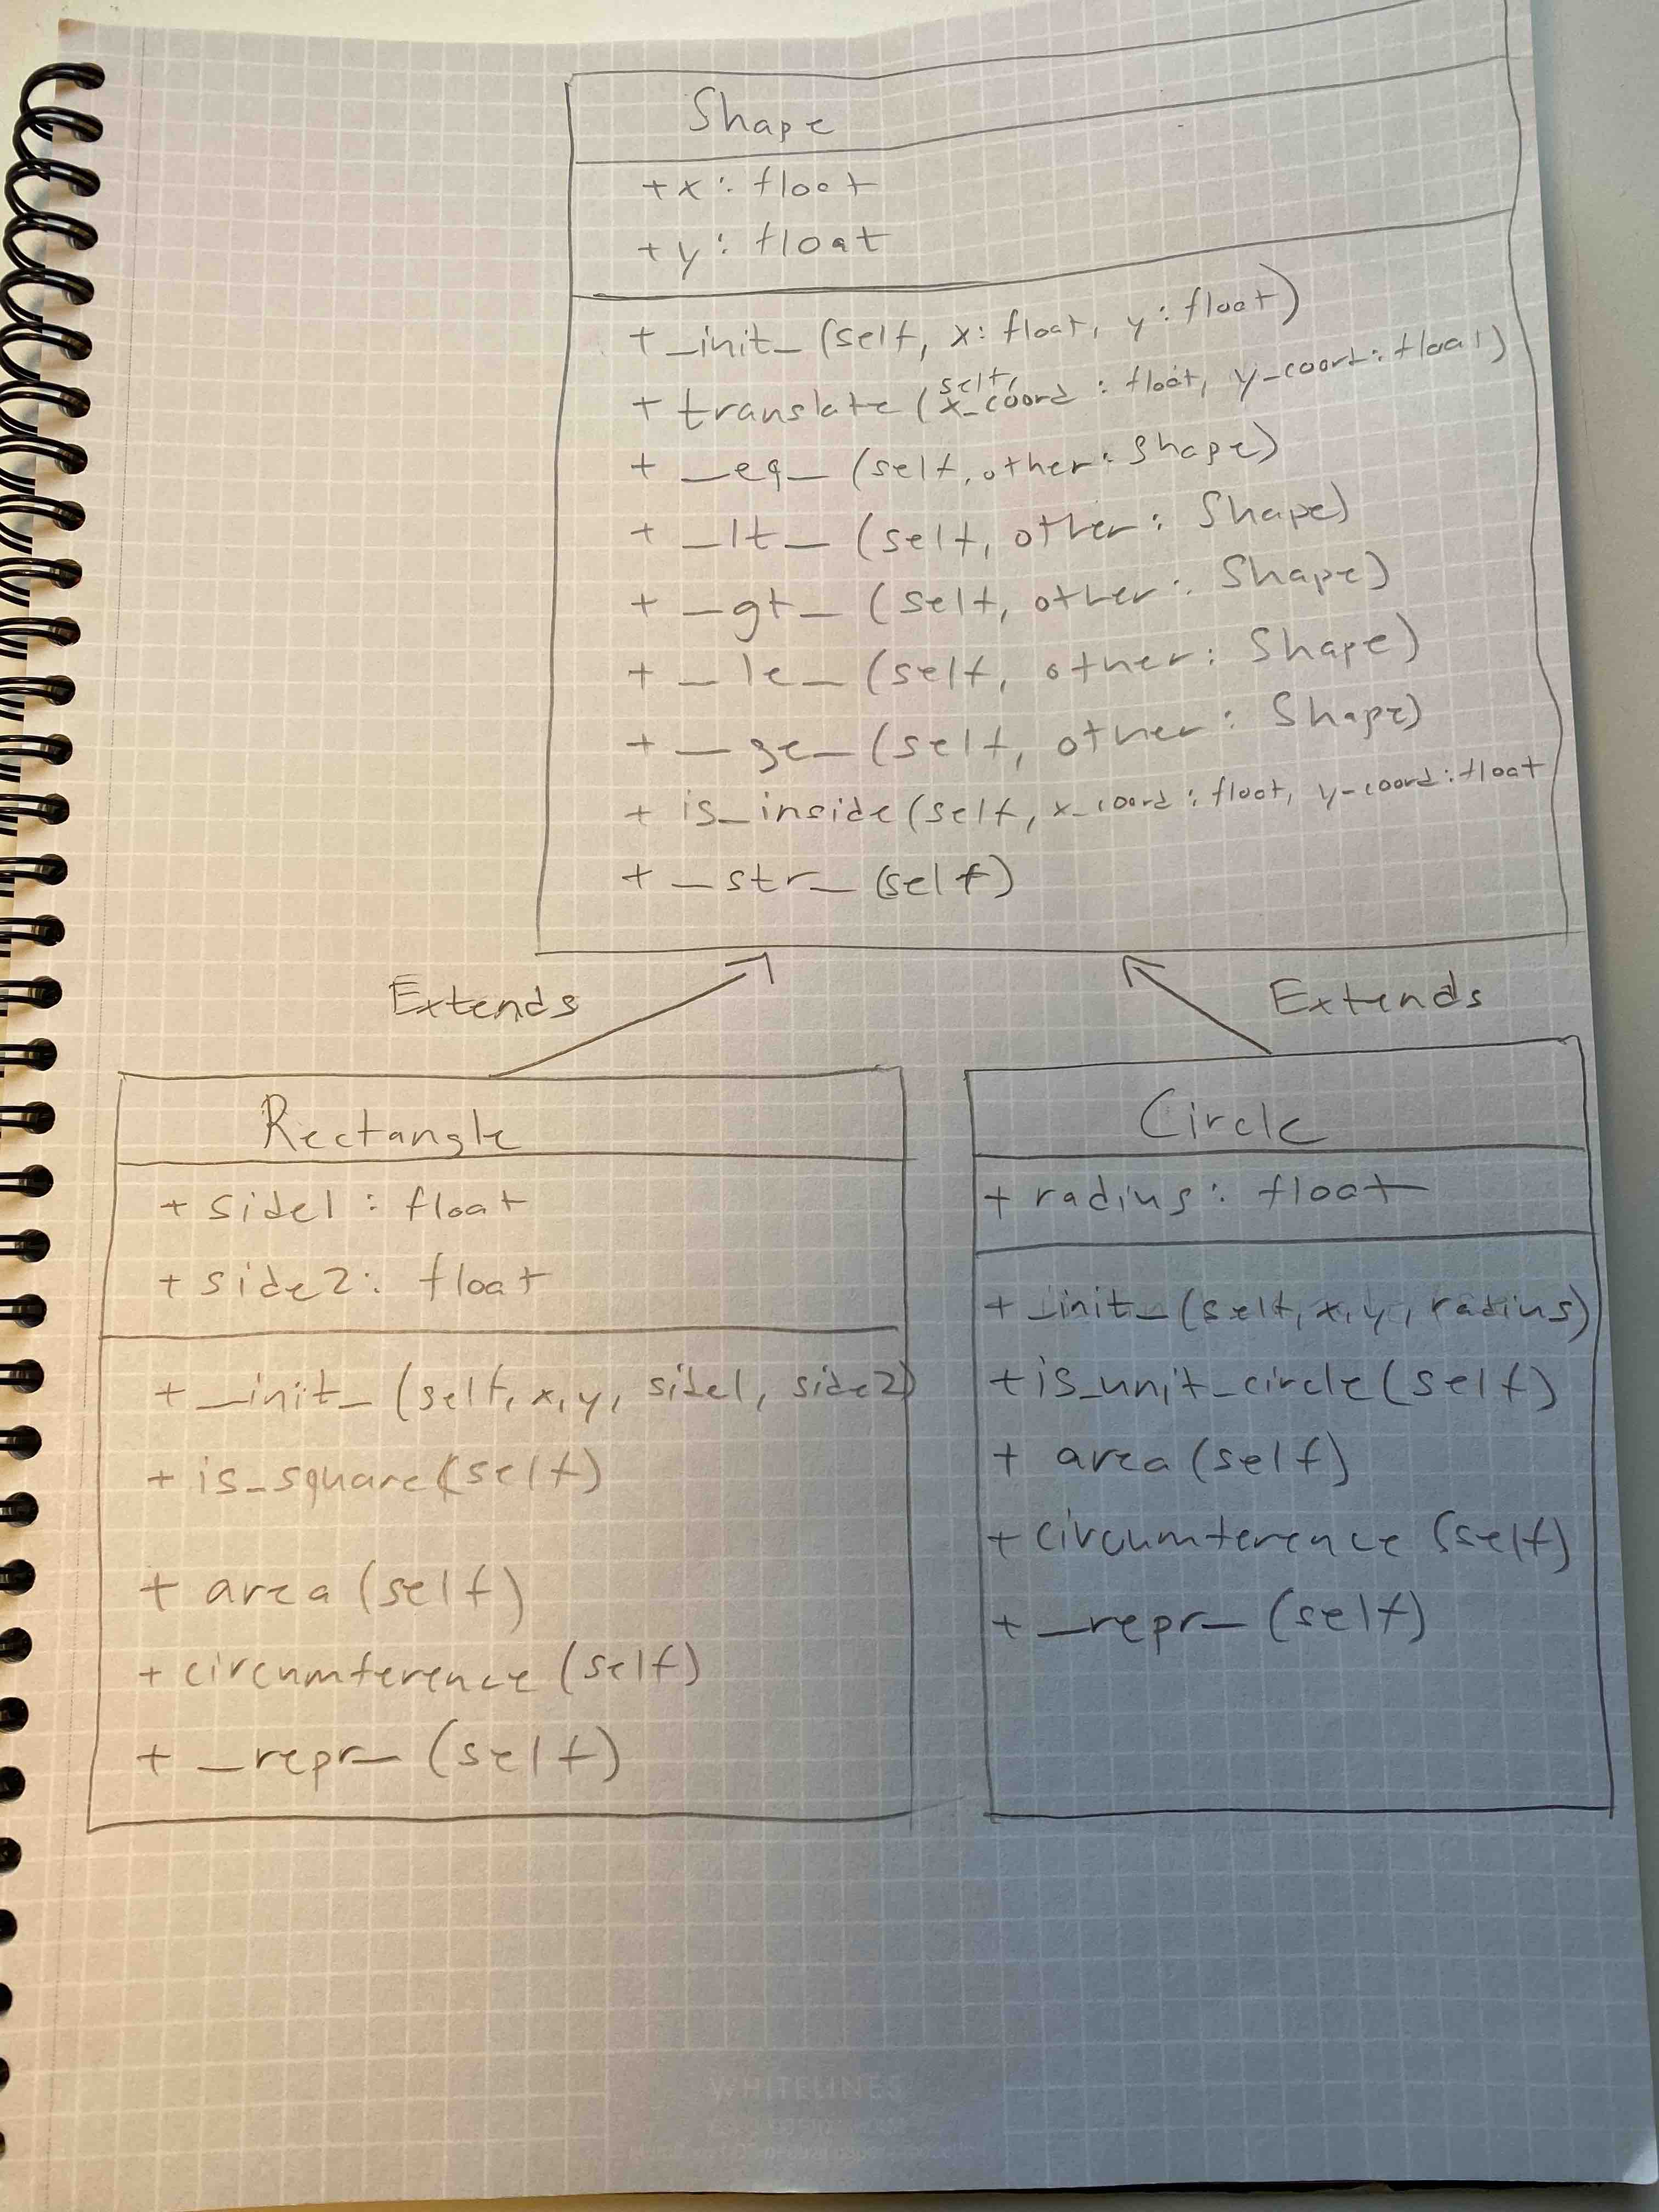 Shape
+x: float
+y: float
+ _init_ (self, x: float, y: float)
+ translate (self, x_coord : float, y_coord: float)
+ __eq_ (self, other: Shape)
+ _lt_ (self, other: Shape)
+ _gt_ (self, other: Shape)
+ _le_ (self, other: Shape)
+ _ge_ (self, other: Shape)
+ is_inside (self, x_coord : float, y_coord: float
+ _str_ (self)
Extends
Extends
Rectangle
+ side1 : float
+ side2: float
+ _init_ (self, x, y, side1, side2)
+ is_square(self)
+ area (self)
+ circumference (self)
+ _repr_ (self)
Circle
+ radius: float
+ _init_ (self, x, y, radius)
+ is_unit_circle (self)
+ area (self)
+ circumference (self)
+ _repr_ (self)
WHITELINES